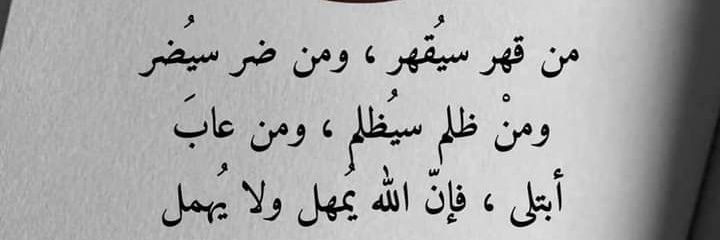 من قهر سيُقهر ، ومن ضر سيُضر
ومنْ ظلم سيُظلم ، ومن عابَ
أبتلى ، فإنّ الله يُمهل ولا يُهمل